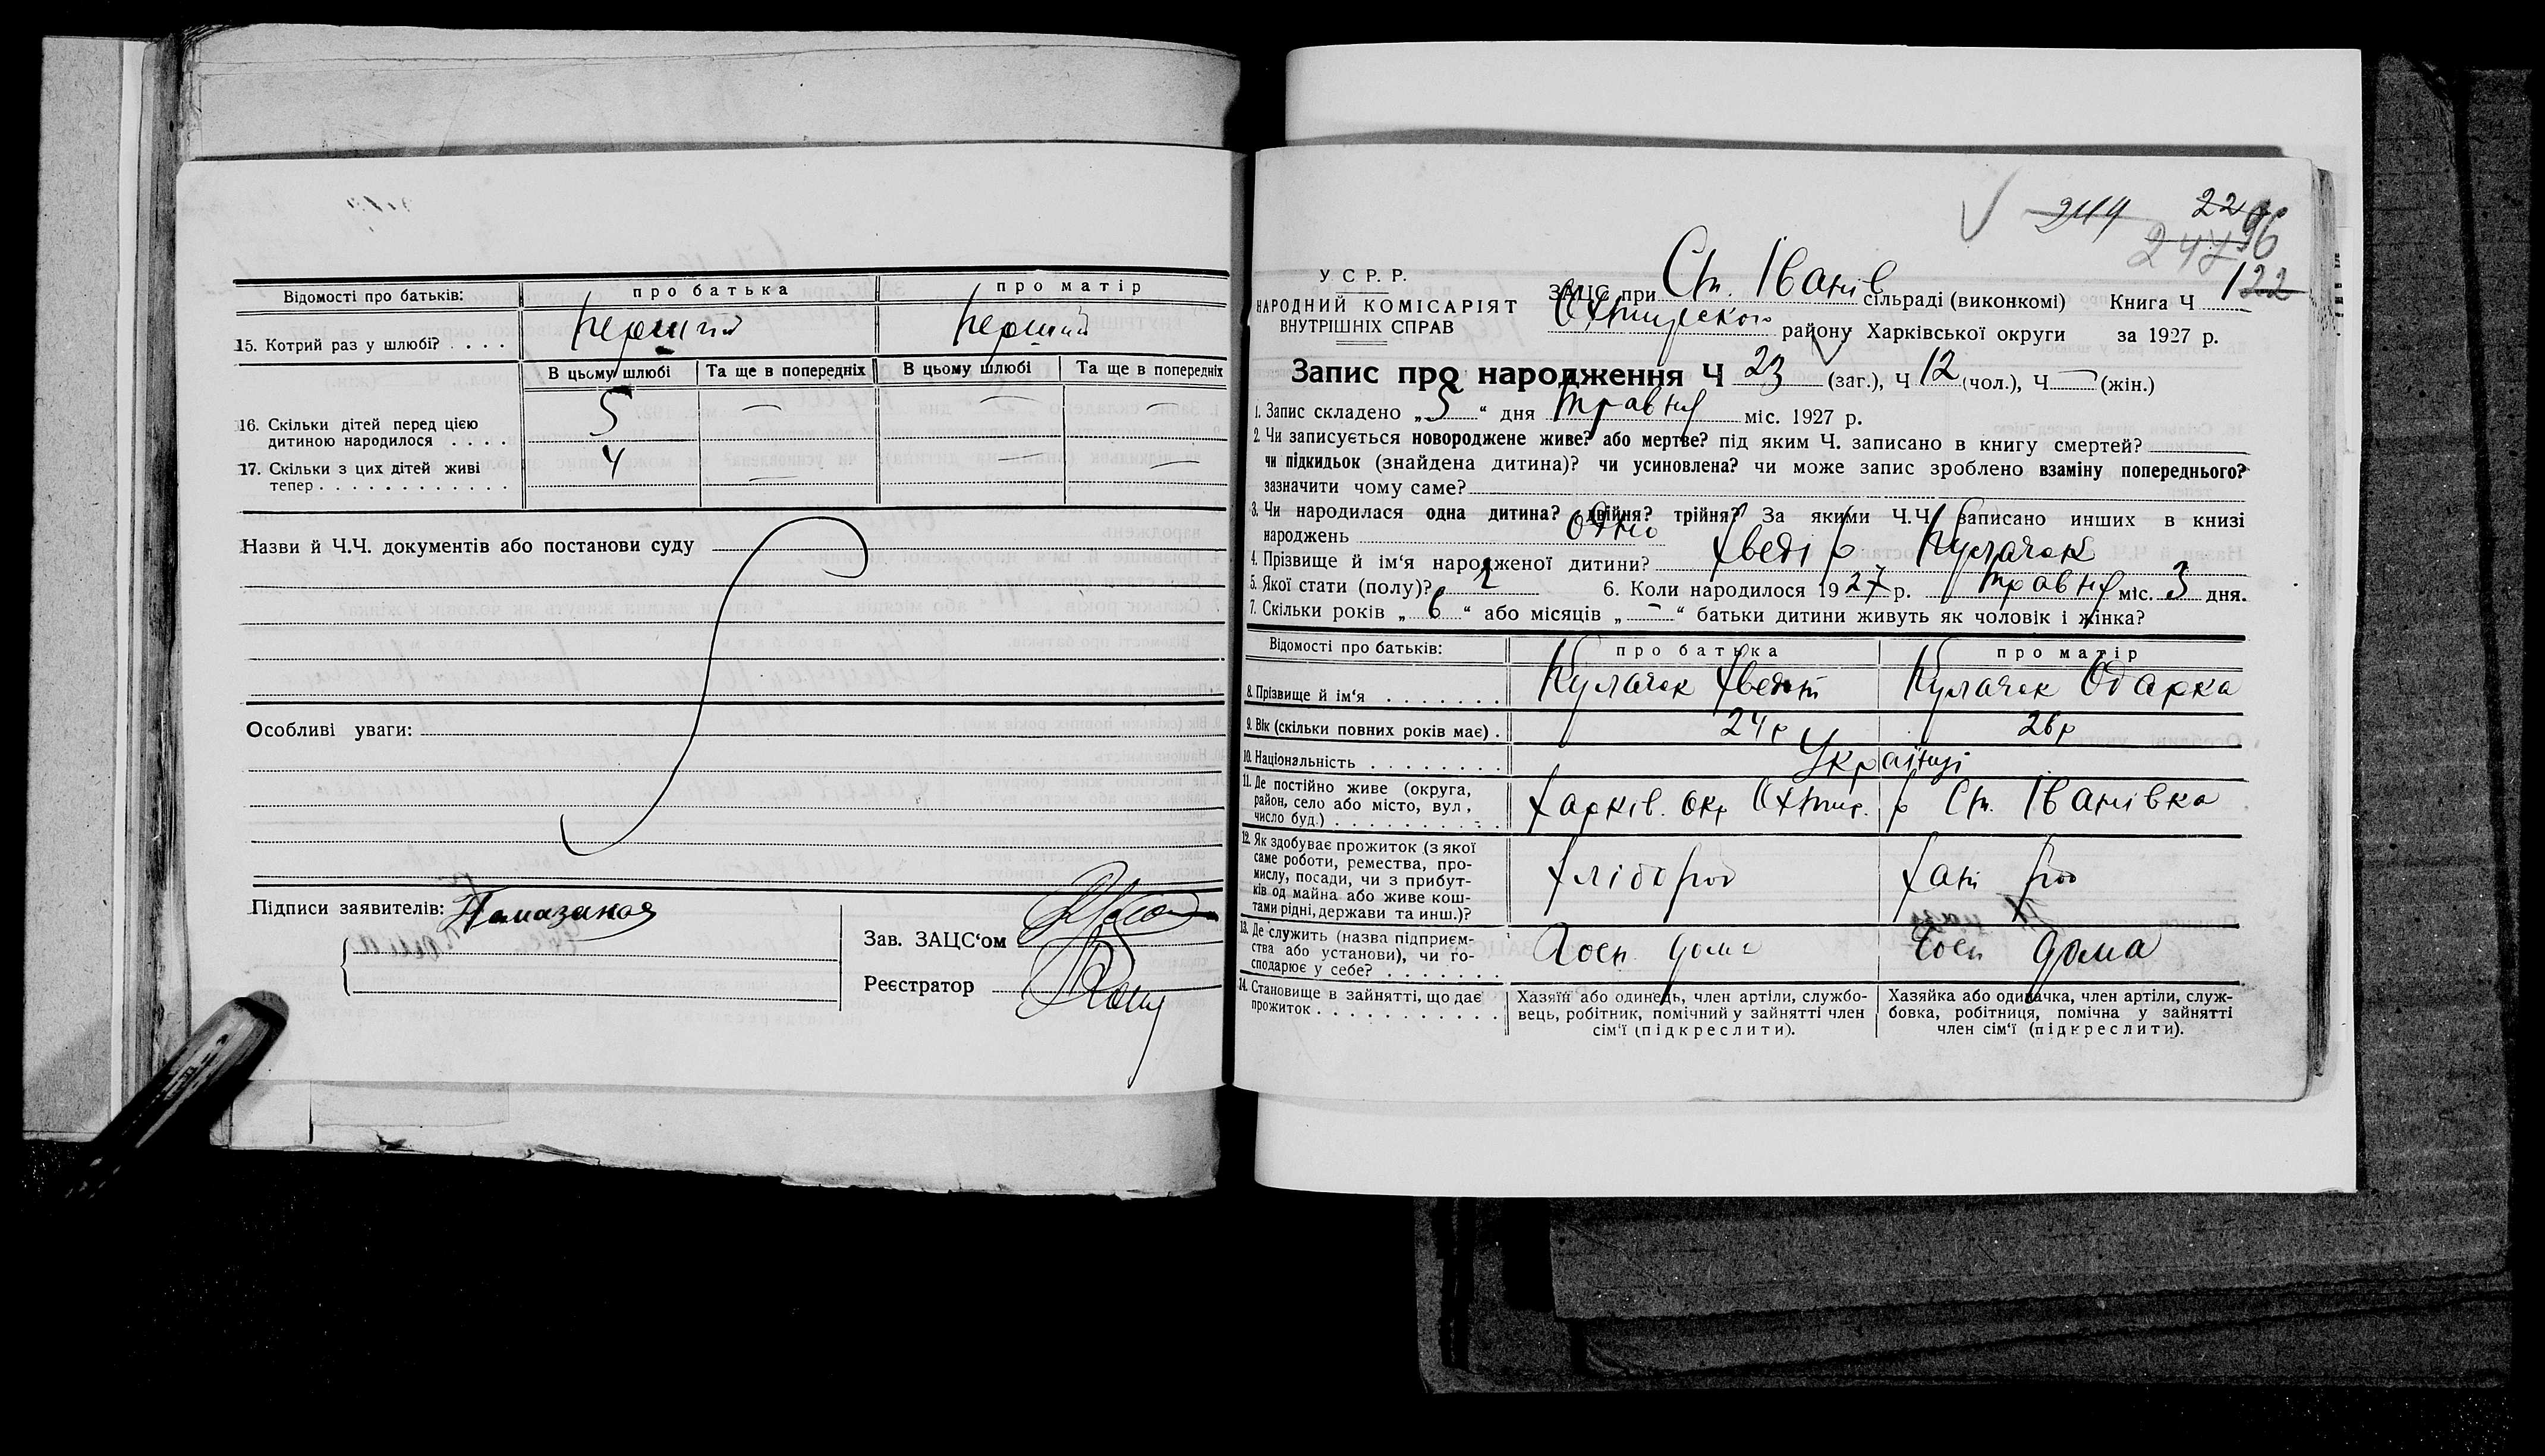 Відомості про батьків: про батька про матір
15. Котрий раз у шлюбі? . . . . перший перший
В цьому шлюбі Та ще в попередніх В цьому шлюбі Та ще в попередніх
16. Скільки дітей перед цією
дитиною народилося . . . . 5 — — —
17. Скільки з цих дітей живі
тепер . . . . . . . . . . . . 4 — — —
Назви й Ч.Ч. документів або постанови суду
Особливі уваги:
Підписи заявителів:
Зав. ЗАЦС‘ом
Реєстратор
244 22 96
247
У.С.Р.Р.
НАРОДНИЙ КОМІСАРІЯТ
ВНУТРІШНІХ СПРАВ
ЗАЦС при Ст. Іванів сільраді (виконкомі) Книга Ч 1 22
Охтирськог району Харківської округи за 1927 р.
Запис про народження Ч 23 (заг.), Ч 12 (чол.), Ч — (жін.)
1. Запис складено „ 5 “ дня травня міс. 1927 р.
2. Чи записується новороджене живе? або мертве? під яким Ч. записано в книгу смертей?
чи підкидьок (знайдена дитина)? чи усиновлена? чи може запис зроблено взаміну попереднього?
зазначити чому саме?
3. Чи народилася одна дитина? двійня? трійня? За якими Ч.Ч. записано инших в книзі
народжень одно
4. Прізвище й ім‘я народженої дитини? Хведір Кулачок
5. Якої стати (полу)? ч 6. Коли народилося 1927 р. травня міс. 3 дня.
7. Скільки років „ 6 “ або місяців „ — “ батьки дитини живуть як чоловік і жінка?
Відомості про батьків: про батька про матір
8. Прізвище й ім‘я . . . . . . . Кулачок Хведот Кулачок Одарка
9. Вік (скільки повних років має) . 24 р 26 р
10. Національність . . . . . . . . Українці
11. Де постійно живе (округа,
район, село або місто, вул.,
число буд.) . . . . . . . . . . Харків. окр Охтир. р Ст. Іванівка
12. Як здобуває прожиток (з якої
саме роботи, ремества, про-
мислу, посади, чи з прибут-
ків од майна або живе кош-
тами рідні, держави та инш.)? хлібороб хат роб
13. Де служить (назва підприєм-
ства або установи), чи го-
сподарює у себе? . . . . . . . Госп. дома Госп дома
14. Становище в зайнятті, що дає
прожиток . . . . . . . . . . .
Хазяїн або одинець, член артіли, службо-
вець, робітник, помічний у зайнятті член
сім‘ї (підкреслити).
Хазяйка або одиначка, член артіли, служ-
бовка, робітниця, помічна у зайнятті
член сім‘ї (підкреслити).